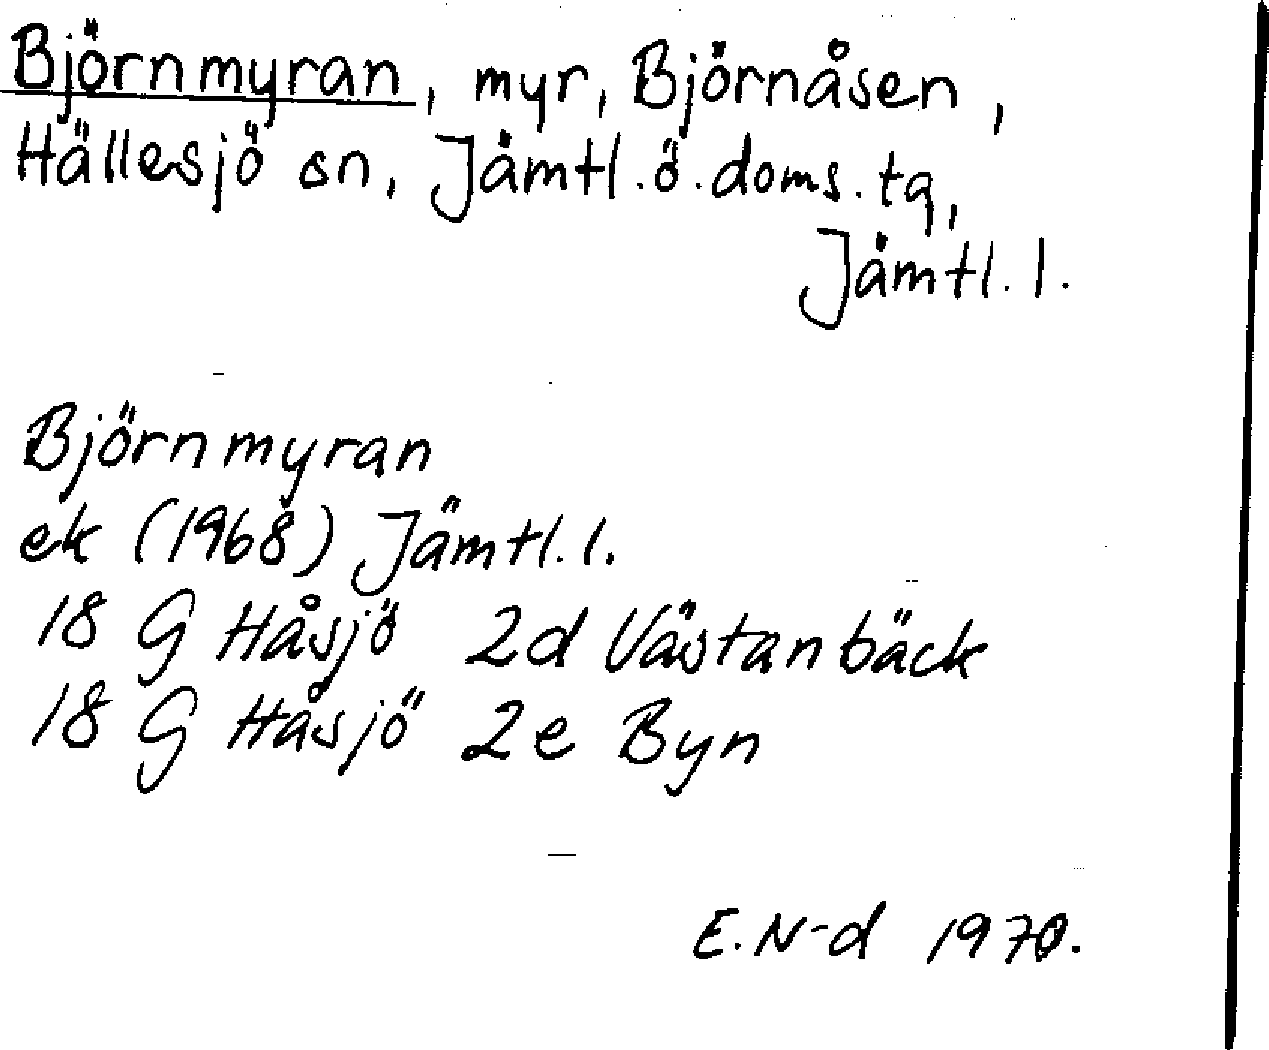 Björnmyran, myr, Björnåsen,
Hällesjö sn, Jämtl.ö.doms.tq,
Jämtl. l.
Björnmyran
ek (1968) Jämtl. l.
18 G Håsjö 2d Västanbäck
18 G Håsjö 2e Byn
E. N-d 1970.